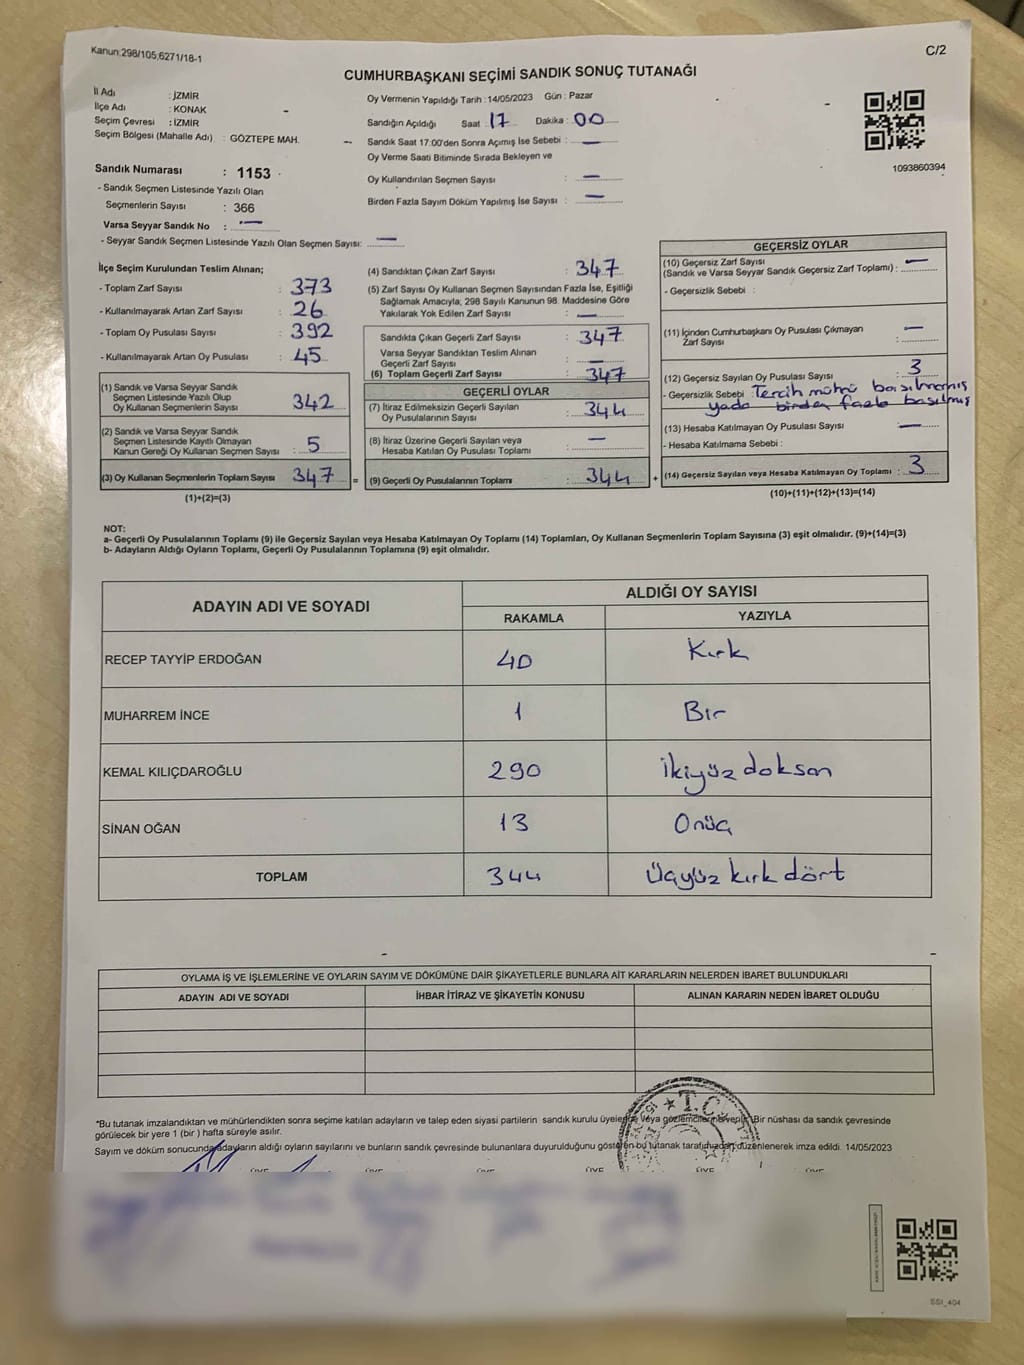 Kanun:298/105;6271/18-1
C/2
CUMHURBAŞKANI SEÇİMİ SANDIK SONUÇ TUTANAĞI
İl Adı : İZMİR
İlçe Adı : KONAK
Seçim Çevresi : İZMİR
Seçim Bölgesi (Mahalle Adı) : GÖZTEPE MAH.
Sandık Numarası : 1153
- Sandık Seçmen Listesinde Yazılı Olan
Seçmenlerin Sayısı : 366
Varsa Seyyar Sandık No : —
- Seyyar Sandık Seçmen Listesinde Yazılı Olan Seçmen Sayısı: —
Oy Vermenin Yapıldığı Tarih : 14/05/2023 Gün : Pazar
Sandığın Açıldığı Saat : 17 Dakika : 00
Sandık Saat 17:00'den Sonra Açımış İse Sebebi : —
Oy Verme Saati Bitiminde Sırada Bekleyen ve
Oy Kullandırılan Seçmen Sayısı : —
Birden Fazla Sayım Döküm Yapılmış İse Sayısı : —
1093860394
İlçe Seçim Kurulundan Teslim Alınan;
- Toplam Zarf Sayısı : 373
- Kullanılmayarak Artan Zarf Sayısı : 26
- Toplam Oy Pusulası Sayısı : 392
- Kullanılmayarak Artan Oy Pusulası : 45
(1) Sandık ve Varsa Seyyar Sandık
Seçmen Listesinde Yazılı Olup
Oy Kullanan Seçmenlerin Sayısı : 342
(2) Sandık ve Varsa Seyyar Sandık
Seçmen Listesinde Kayıtlı Olmayan
Kanun Gereği Oy Kullanan Seçmen Sayısı : 5
(3) Oy Kullanan Seçmenlerin Toplam Sayısı : 347
(1)+(2)=(3)
(4) Sandıktan Çıkan Zarf Sayısı : 347
(5) Zarf Sayısı Oy Kullanan Seçmen Sayısından Fazla İse, Eşitliği
Sağlamak Amacıyla; 298 Sayılı Kanunun 98. Maddesine Göre
Yakılarak Yok Edilen Zarf Sayısı : —
Sandıkta Çıkan Geçerli Zarf Sayısı : 347
Varsa Seyyar Sandıktan Teslim Alınan
Geçerli Zarf Sayısı : —
(6) Toplam Geçerli Zarf Sayısı : 347
GEÇERLİ OYLAR
(7) İtiraz Edilmeksizin Geçerli Sayılan
Oy Pusulalarının Sayısı : 344
(8) İtiraz Üzerine Geçerli Sayılan veya
Hesaba Katılan Oy Pusulası Toplamı : —
= (9) Geçerli Oy Pusulalarının Toplamı : 344 +
GEÇERSİZ OYLAR
(10) Geçersiz Zarf Sayısı
(Sandık ve Varsa Seyyar Sandık Geçersiz Zarf Toplamı) : —
- Geçersizlik Sebebi :
(11) İçinden Cumhurbaşkanı Oy Pusulası Çıkmayan
Zarf Sayısı : —
(12) Geçersiz Sayılan Oy Pusulası Sayısı : 3
- Geçersizlik Sebebi : Tercih mührü basılmamış
yada birden fazla basılmış
(13) Hesaba Katılmayan Oy Pusulası Sayısı : —
- Hesaba Katılmama Sebebi :
(14) Geçersiz Sayılan veya Hesaba Katılmayan Oy Toplamı : 3
(10)+(11)+(12)+(13)=(14)
NOT:
a- Geçerli Oy Pusulalarının Toplamı (9) ile Geçersiz Sayılan veya Hesaba Katılmayan Oy Toplamı (14) Toplamları, Oy Kullanan Seçmenlerin Toplam Sayısına (3) eşit olmalıdır. (9)+(14)=(3)
b- Adayların Aldığı Oyların Toplamı, Geçerli Oy Pusulalarının Toplamına (9) eşit olmalıdır.
ADAYIN ADI VE SOYADI ALDIĞI OY SAYISI
RAKAMLA YAZIYLA
RECEP TAYYİP ERDOĞAN 40 Kırk
MUHARREM İNCE 1 Bir
KEMAL KILIÇDAROĞLU 290 ikiyüz doksan
SİNAN OĞAN 13 Onüç
TOPLAM 344 Üçyüz kırk dört
OYLAMA İŞ VE İŞLEMLERİNE VE OYLARIN SAYIM VE DÖKÜMÜNE DAİR ŞİKAYETLERLE BUNLARA AİT KARARLARIN NELERDEN İBARET BULUNDUKLARI
ADAYIN ADI VE SOYADI İHBAR İTİRAZ VE ŞİKAYETİN KONUSU ALINAN KARARIN NEDEN İBARET OLDUĞU
T.C.
*Bu tutanak imzalandıktan ve mühürlendikten sonra seçime katılan adayların ve talep eden siyasi partilerin sandık kurulu üyelerine veya gözlemcilerine verilir. Bir nüshası da sandık çevresinde
görülecek bir yere 1 (bir) hafta süreyle asılır.
Sayım ve döküm sonucunda adayların aldığı oyların sayılarını ve bunların sandık çevresinde bulunanlara duyurulduğunu gösteren bu tutanak tarafımızdan düzenlenerek imza edildi. 14/05/2023
ÜYE ÜYE ÜYE ÜYE ÜYE ÜYE
SSI_404